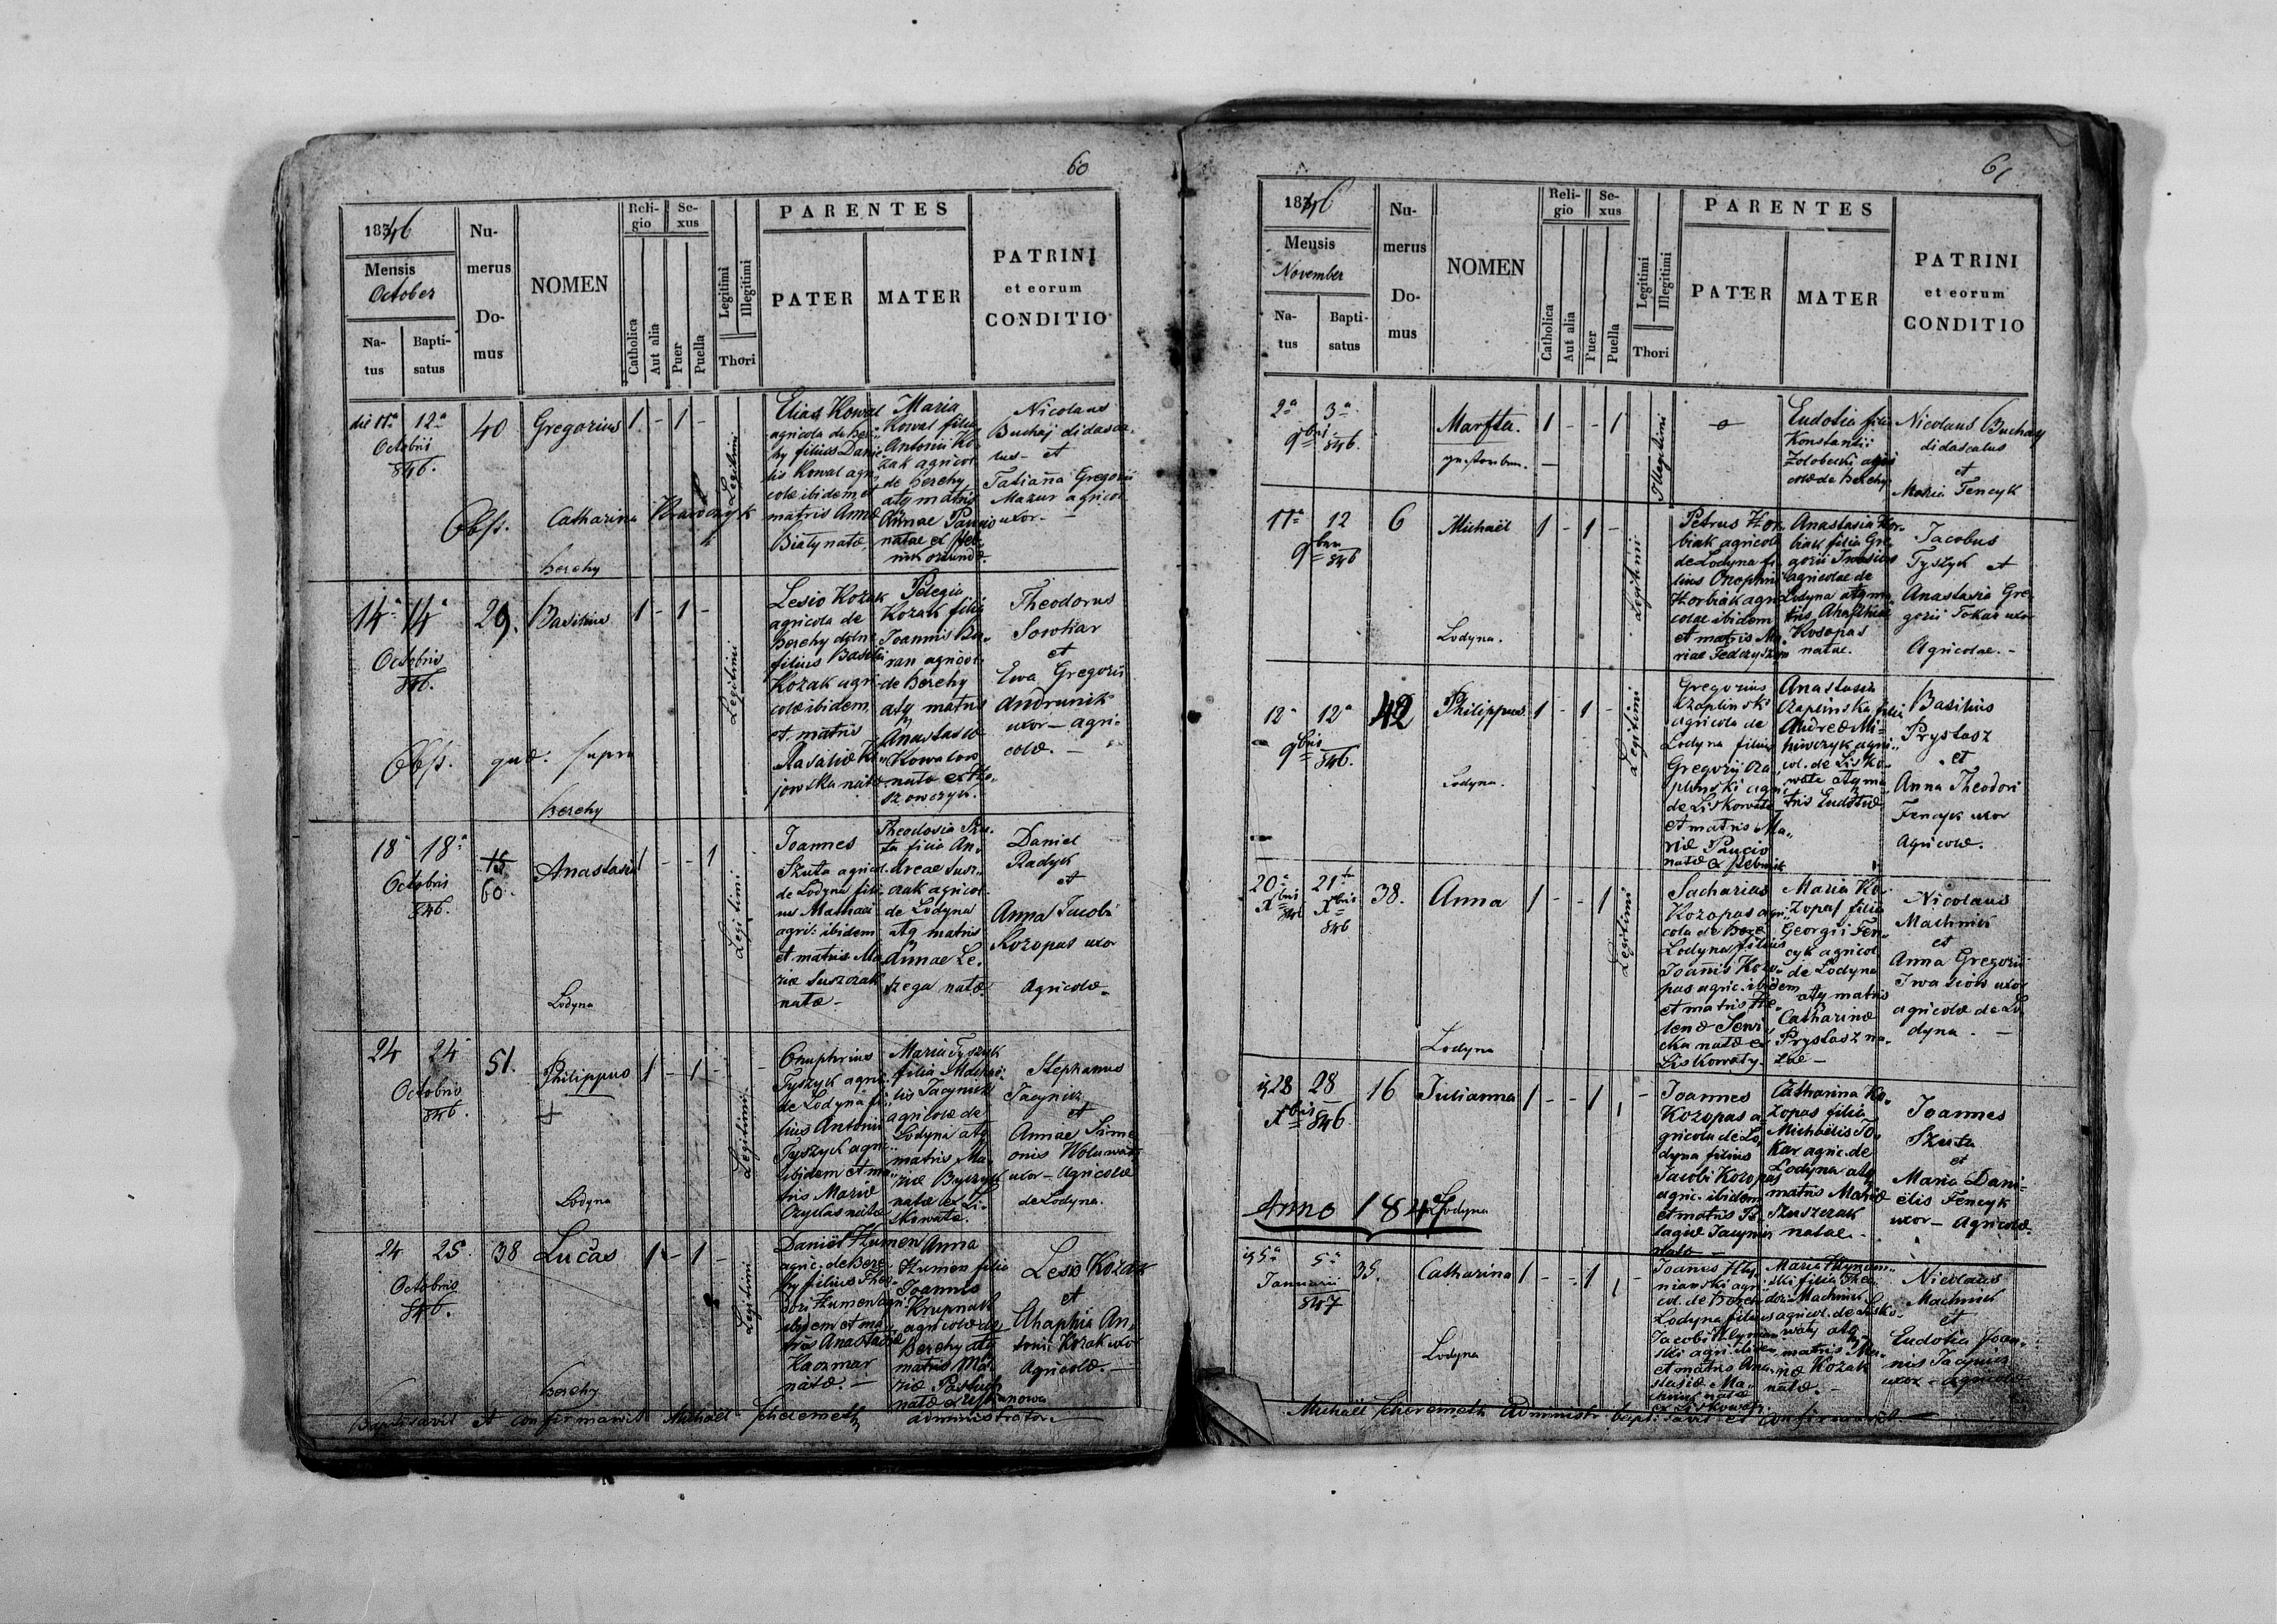 60
1846
Mensis
October
Na-
tus
Bapti-
satus
Nu-
merus
Do-
mus
NOMEN
Reli-
gio
Catholica
Aut alia
Se-
xus
Puer
Puella
Legitimi
Illegitimi
Thori
PARENTES
PATER
MATER
PATRINI
et eorum
CONDITIO
die 11ª 12ª
Octobris
846.
40
Gregorius
1 - 1 -
Legitimi
Elias Kowal
agricola de Ber
hy filius Danie
lis Kowal agri
colæ ibidem et
matris Annæ
Biały natæ
Maria
Kowal filia
Antonii Ko
zak agricol
de Berehy
atq matris
Annae Paucio
natae ex
oriundæ.
Nicolaus
Buchaj didasca
lus - et
Tatianna Gregorii
Mazur agricol
uxor -
Obst. Catharina Krawczyk
Berehy
14ª 14ª
Octobris
846.
29.
Basilius
1 - 1 -
Legitimi
Lesio Kozak
agricola de
Berehy dolne
filius Basilii
Kozak agri
colæ ibidem
et matris
Rasaliæ Ki
jowska natæ
Pelegia
Kozak filia
Joannis Ba
ran agricol.
de Berehy
atq matris
Anastasiæ
Kowalow
nata ex
Theodorus
Sowhar
et
Ewa Gregorii
Andrunik
uxor - agri-
colæ. -
Obst. quæ. supra
Berehy
18ª 18ª
Octobris
846.
15
60.
Anastasia
1 - - 1
Legitimi
Joannes
Szuta agricol.
de Lodyna fili
us Mathaei
agri: ibidem
et matris Ma
riæ Suszczak
natæ -
Theodosia Szu.
ta filia An.
dreae Susz..
czak agricol.
de Lodyna
atq matris
Annae Le.
szega natæ
Daniel
Radyk
et
Anna Jacobi
Kozopas uxor
Agricolæ.
Lodyna
24 24
Octobris
846.
51.
Philippus
+
1 - 1 - -
Legitimi
Onuphrius
Tyszyk agri
de Lodyna fi
lius Antonii
Tyszyk agri
ibidem et ma
tris Mariæ
natæ
Maria Tyszyk
filia Michaë
lis Jacynicz
agricolæ de
Lodyna atq
matris Ma
riæ
natæ ex Li
skowate.
Stephanus
Jacynicz
et
Annae Sime
onis
uxor - Agricolæ
de Lodyna.
Lodyna
24 25.
Octobris
846.
38
Lucas
1 - 1 -
Legitimi
Daniel Humen
agric. de Bere
hy filius Theo
dori Humen agri
ibidem et ma
tris Anastasiæ
Kaczmar
natæ. -
Anna
Humen filia
Joannis
Krupnach
agricolæ de
Berehy atq
matris Ma
riæ
natæ ex
Lesio Kozak
et
Ahaphia An.
tonii Kozak uxor
Agricolæ. -
Berehy
Baptisavit et confirmavit Michaël Scheremeth administrator. -
61
1846
Mensis
November
Na-
tus
Bapti-
satus
Nu-
merus
Do-
mus
NOMEN
Reli-
gio
Catholica
Aut alia
Se-
xus
Puer
Puella
Legitimi
Illegitimi
Thori
PARENTES
PATER
MATER
PATRINI
et eorum
CONDITIO
2ª 3ª
9bris 846.
Marfta.
1 - - 1
Illegitimi
Eudotia filia
Konstantii
Zolobecki agri
colæ de Berehy
Nicolaus Buchay
didascalus
et
Maria Fencyk
11ª 12
9bris 846
6
Michaël
1 - 1 -
Legitimi
Petrus Hor
biak agricola
de Lodyna fi
lius Onophrii
Horbiak agri
colae ibidem
et matris Ma
riae Fedczyszyn
Anastasia Hor.
biak filia Gre
gorii Iwasiow
agricolae de
Lodyna atq ma
tris
Kosopas
natae.
Jacobus
Tyszyk et
Anastasia Gre
gorii Tokar uxor
Agricolae. -
Lodyna.
12ª 12ª
9bris 846.
42
Philippus.
1 - 1 -
Legitimi
Gregorius
Czaplinski
agricola de
Lodyna filius
Gregorij Cza
plinski agri
de Liskowate
et matris Ma
riæ Paucio
natæ ex
Anastasia
Czaplinska filia
Andreæ Mi
agri
col. de Lisko
wate atq ma
tris Eudotiæ
Basilius
Prystasz
et
Anna Theodori
Fencyk uxor
Agricolæ.
Lodyna.
20ª 21ª
Xbris 846 Xbris 846
38.
Anna
1 - - 1
Legitimi
Sacharias
Kozopas agri
cola de Bere
Lodyna filius
Joannis Kozo
pas agric. ibidem
et matris He
lenæ
natæ ex
Liskowaty
Maria Ko.
zopas filia
Georgii Fen
cyk agricol
de Lodyna
atq matris
Catharinæ
Prystasz na
tae -
Nicolaus
Machnik
et
Anna Gregorii
Iwasiow uxor
agricolæ de Lo
dyna. -
Lodyna
28 28
Xbris 846.
16
Julianna
1 - - 1 -
Joannes
Kozopas a
gricola de Lo
dyna filius
Jacobi Kozopas
agric. ibidem
et matris Pe
lagiæ Jacynicz
natæ -
Catharina Ko.
zopas filia
Michaëlis To
kar agric. de
Lodyna atq
matris Mariæ
Szuszczak
natae. -
Joannes
Szuta
et
Maria Dani-
ëlis Fencyk
uxor - Agricolæ.
Lodyna
Anno 1847
5ª 5ª
Januarii
847
35.
Catharina
1 - - 1 -
Joannes Hly
niawski agri
col. de Bereh
Lodyna filius
Jacobi
ski agri. ibidem
et matris Ana
stasiæ Ma
chnik natæ
ex Liskowaty.
Maria
ski filia Theo
dori Machnik
agricol. de Lisko
waty atq
matris Ma
riæ Kozak
natæ. -
Nicolaus
Machnik
et
Eudotia Joan.
nis Jacynicz
uxor - Agricolæ
Lodyna
Michaël Scheremeth Administr bapti savit et confirmavit